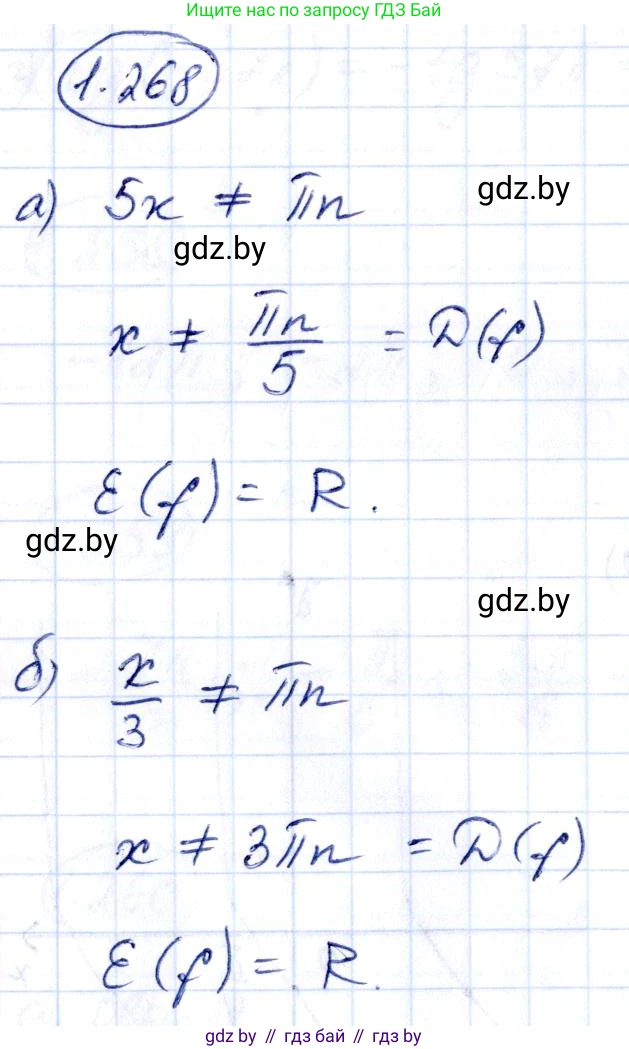 Ищите подсказку по запросу ГДЗ Бай
1.268
а) 5x ≠ πn
gdz.by
gdz.by
x ≠ πn/5 = D(f)
E(f) = R.
gdz.by
gdz.by
б) x/3 ≠ πn
x ≠ 3πn = D(f)
E(f) = R.
gdz.by // гдз бай // гдз.by